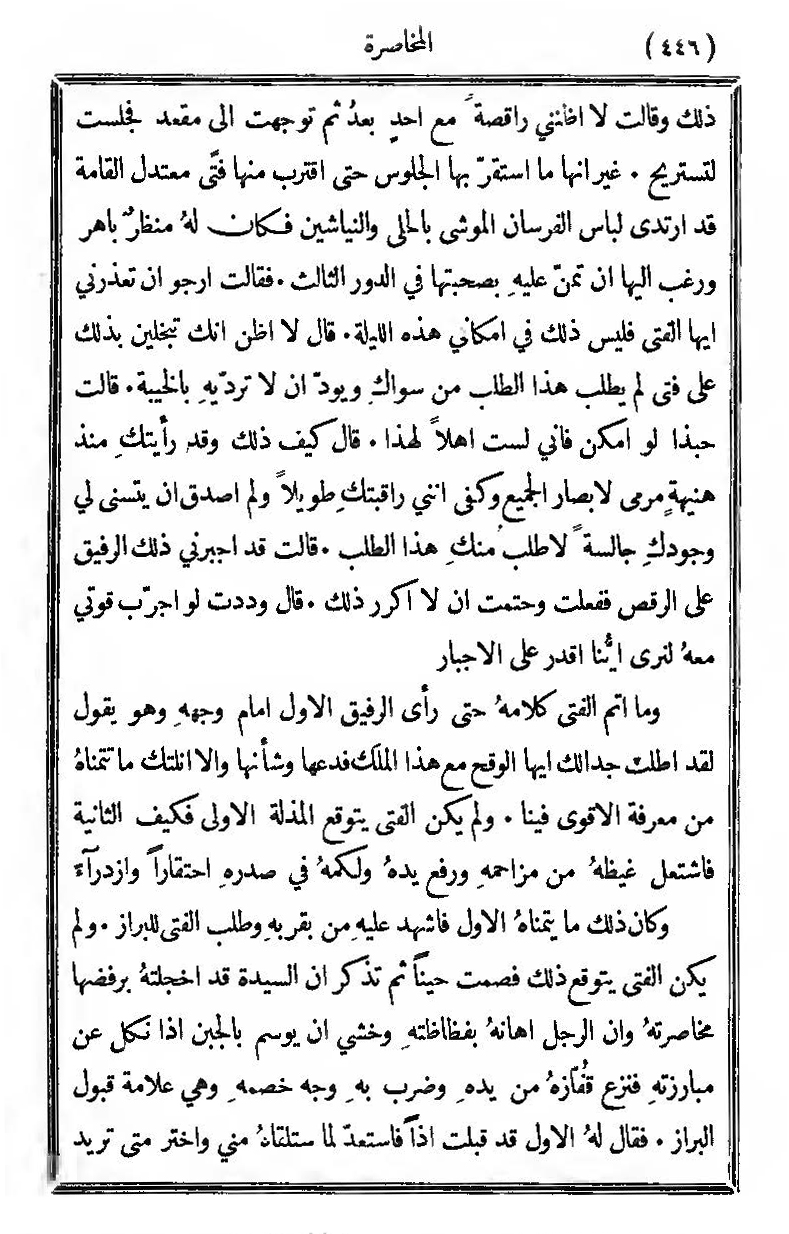 (٤٤٦) المخاصرة
ذلك وقالت لا اظنني راقصةً مع احدٍ بعدُ ثم توجهت الى مقعد فجلست
لتستريح . غير انها ما استقرّ بها الجلوس حتى اقترب منها فتًى معتدل القامة
قد ارتدى لباس الفرسان الموشى بالحلي والنياشين فكان لهُ منظرٌ باهر
ورغب اليها ان تمنّ عليهِ بصحبتها في الدور الثالث . فقالت ارجو ان تعذرني
ايها الفتى فليس ذلك في امكاني هذه الليلة . قال لا اظن انك تبخلين بذلك
على فتى لم يطلب هذا الطلب من سواكِ ويودّ ان لا تردّيهِ بالخيبة . قالت
حبذا لو امكن فاني لست اهلاً لهذا . قال كيف ذلك وقد رأيتكِ منذ
هنيهةٍ مرمى لابصار الجميع وكفى انني راقبتكِ طويلاً ولم اصدق ان يتسنى لي
وجودكِ جالسةً لاطلب منكِ هذا الطلب . قالت قد اجبرني ذلك الرفيق
على الرقص ففعلت وحتمت ان لا اكرر ذلك . قال وددت لو اجرّب قوتي
معهُ لنرى ايُّنا اقدر على الاجبار
وما اتم الفتى كلامهُ حتى رأى الرفيق الاول امام وجههِ وهو يقول
لقد اطلت جدالك ايها الوقح مع هذا الملك فدعها وشأنها والا انلتك ما تتمناهُ
من معرفة الاقوى فينا . ولم يكن الفتى يتوقع المذلة الاولى فكيف الثانية
فاشتعل غيظهُ من مزاحمهِ ورفع يدهُ ولكمهُ في صدرهِ احتقاراً وازدرآءً
وكان ذلك ما يتمناهُ الاول فاشهد عليهِ من بقربهِ وطلب الفتى للبراز . ولم
يكن الفتى يتوقع ذلك فصمت حيناً ثم تذكر ان السيدة قد اخجلتهُ برفضها
مخاصرتهُ وان الرجل اهانهُ بفظاظتهِ وخشي ان يوسم بالجبن اذا نكل عن
مبارزتهِ فنزع قُفّازهُ من يدهِ وضرب بهِ وجه خصمهِ وهي علامة قبول
البراز . فقال لهُ الاول قد قبلت اذاً فاستعدّ لما ستلقاهُ مني واختر متى تريد